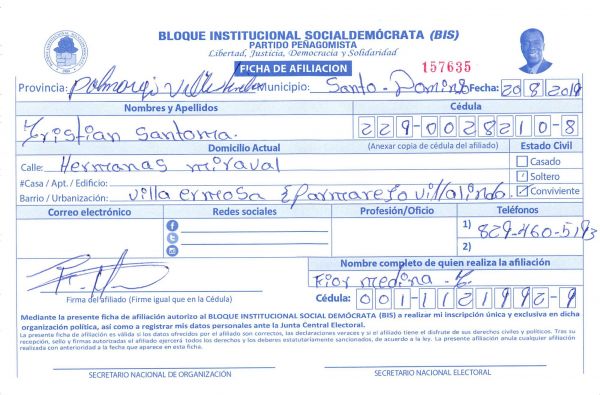 BLOQUE INSTITUCIONAL SOCIALDEMÓCRATA (BIS)
PARTIDO PEÑAGOMISTA
Libertad, Justicia, Democracia y Solidaridad
FICHA DE AFILIACION 157635
Provincia: Municipio: Santo-Domingo Fecha: 20 8 2019
Nombres y Apellidos Cédula
Kristian Santoma. 229-0028210-8
Domicilio Actual (Anexar copia de cédula del afiliado) Estado Civil
Calle: Hermanas miraval Casado
#Casa / Apt. / Edificio: Soltero
Barrio / Urbanización: villa ermosa Conviviente
Correo electrónico Redes sociales Profesión/Oficio Teléfonos
1) 829-460-5193
2)
Nombre completo de quien realiza la afiliación
Fior medina
Firma del afiliado (Firme igual que en la Cédula) Cédula: 001-1121992-9
Mediante la presente ficha de afiliación autorizo al BLOQUE INSTITUCIONAL SOCIAL DEMÓCRATA (BIS) a realizar mi inscripción única y exclusiva en dicha
organización política, así como a registrar mis datos personales ante la Junta Central Electoral.
La presente ficha de afiliación es válida si los datos ofrecidos por el afiliado son correctos, las declaraciones veraces y si el afiliado tiene el disfrute de sus derechos civiles y políticos. Tras su
recepción, sello y firmas autorizadas el afiliado ejercerá todos los derechos y los deberes estatutariamente sancionados, de acuerdo a la ley. La presente afiliación anula cualquier afiliación
realizada con anterioridad a la fecha que aparece en esta ficha.
SECRETARIO NACIONAL DE ORGANIZACIÓN SECRETARIO NACIONAL ELECTORAL